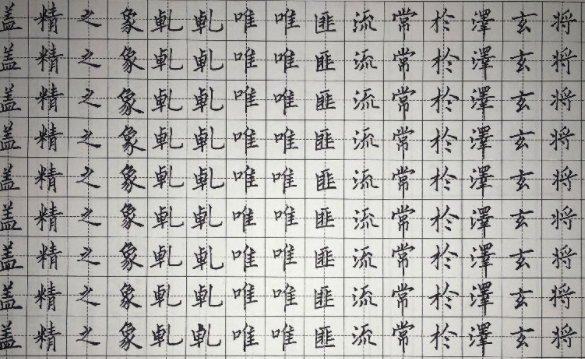 将将将将将将将将将
玄玄玄玄玄玄玄玄玄
澤澤澤澤澤澤澤澤澤
於於於於於於於於於
常常常常常常常常常
流流流流流流流流流
匪匪匪匪匪匪匪匪匪
唯唯唯唯唯唯唯唯唯
唯唯唯唯唯唯唯唯唯
乹乹乹乹乹乹乹乹乹
乹乹乹乹乹乹乹乹乹
象象象象象象象象象
之之之之之之之之之
精精精精精精精精精
盖盖盖盖盖盖盖盖盖